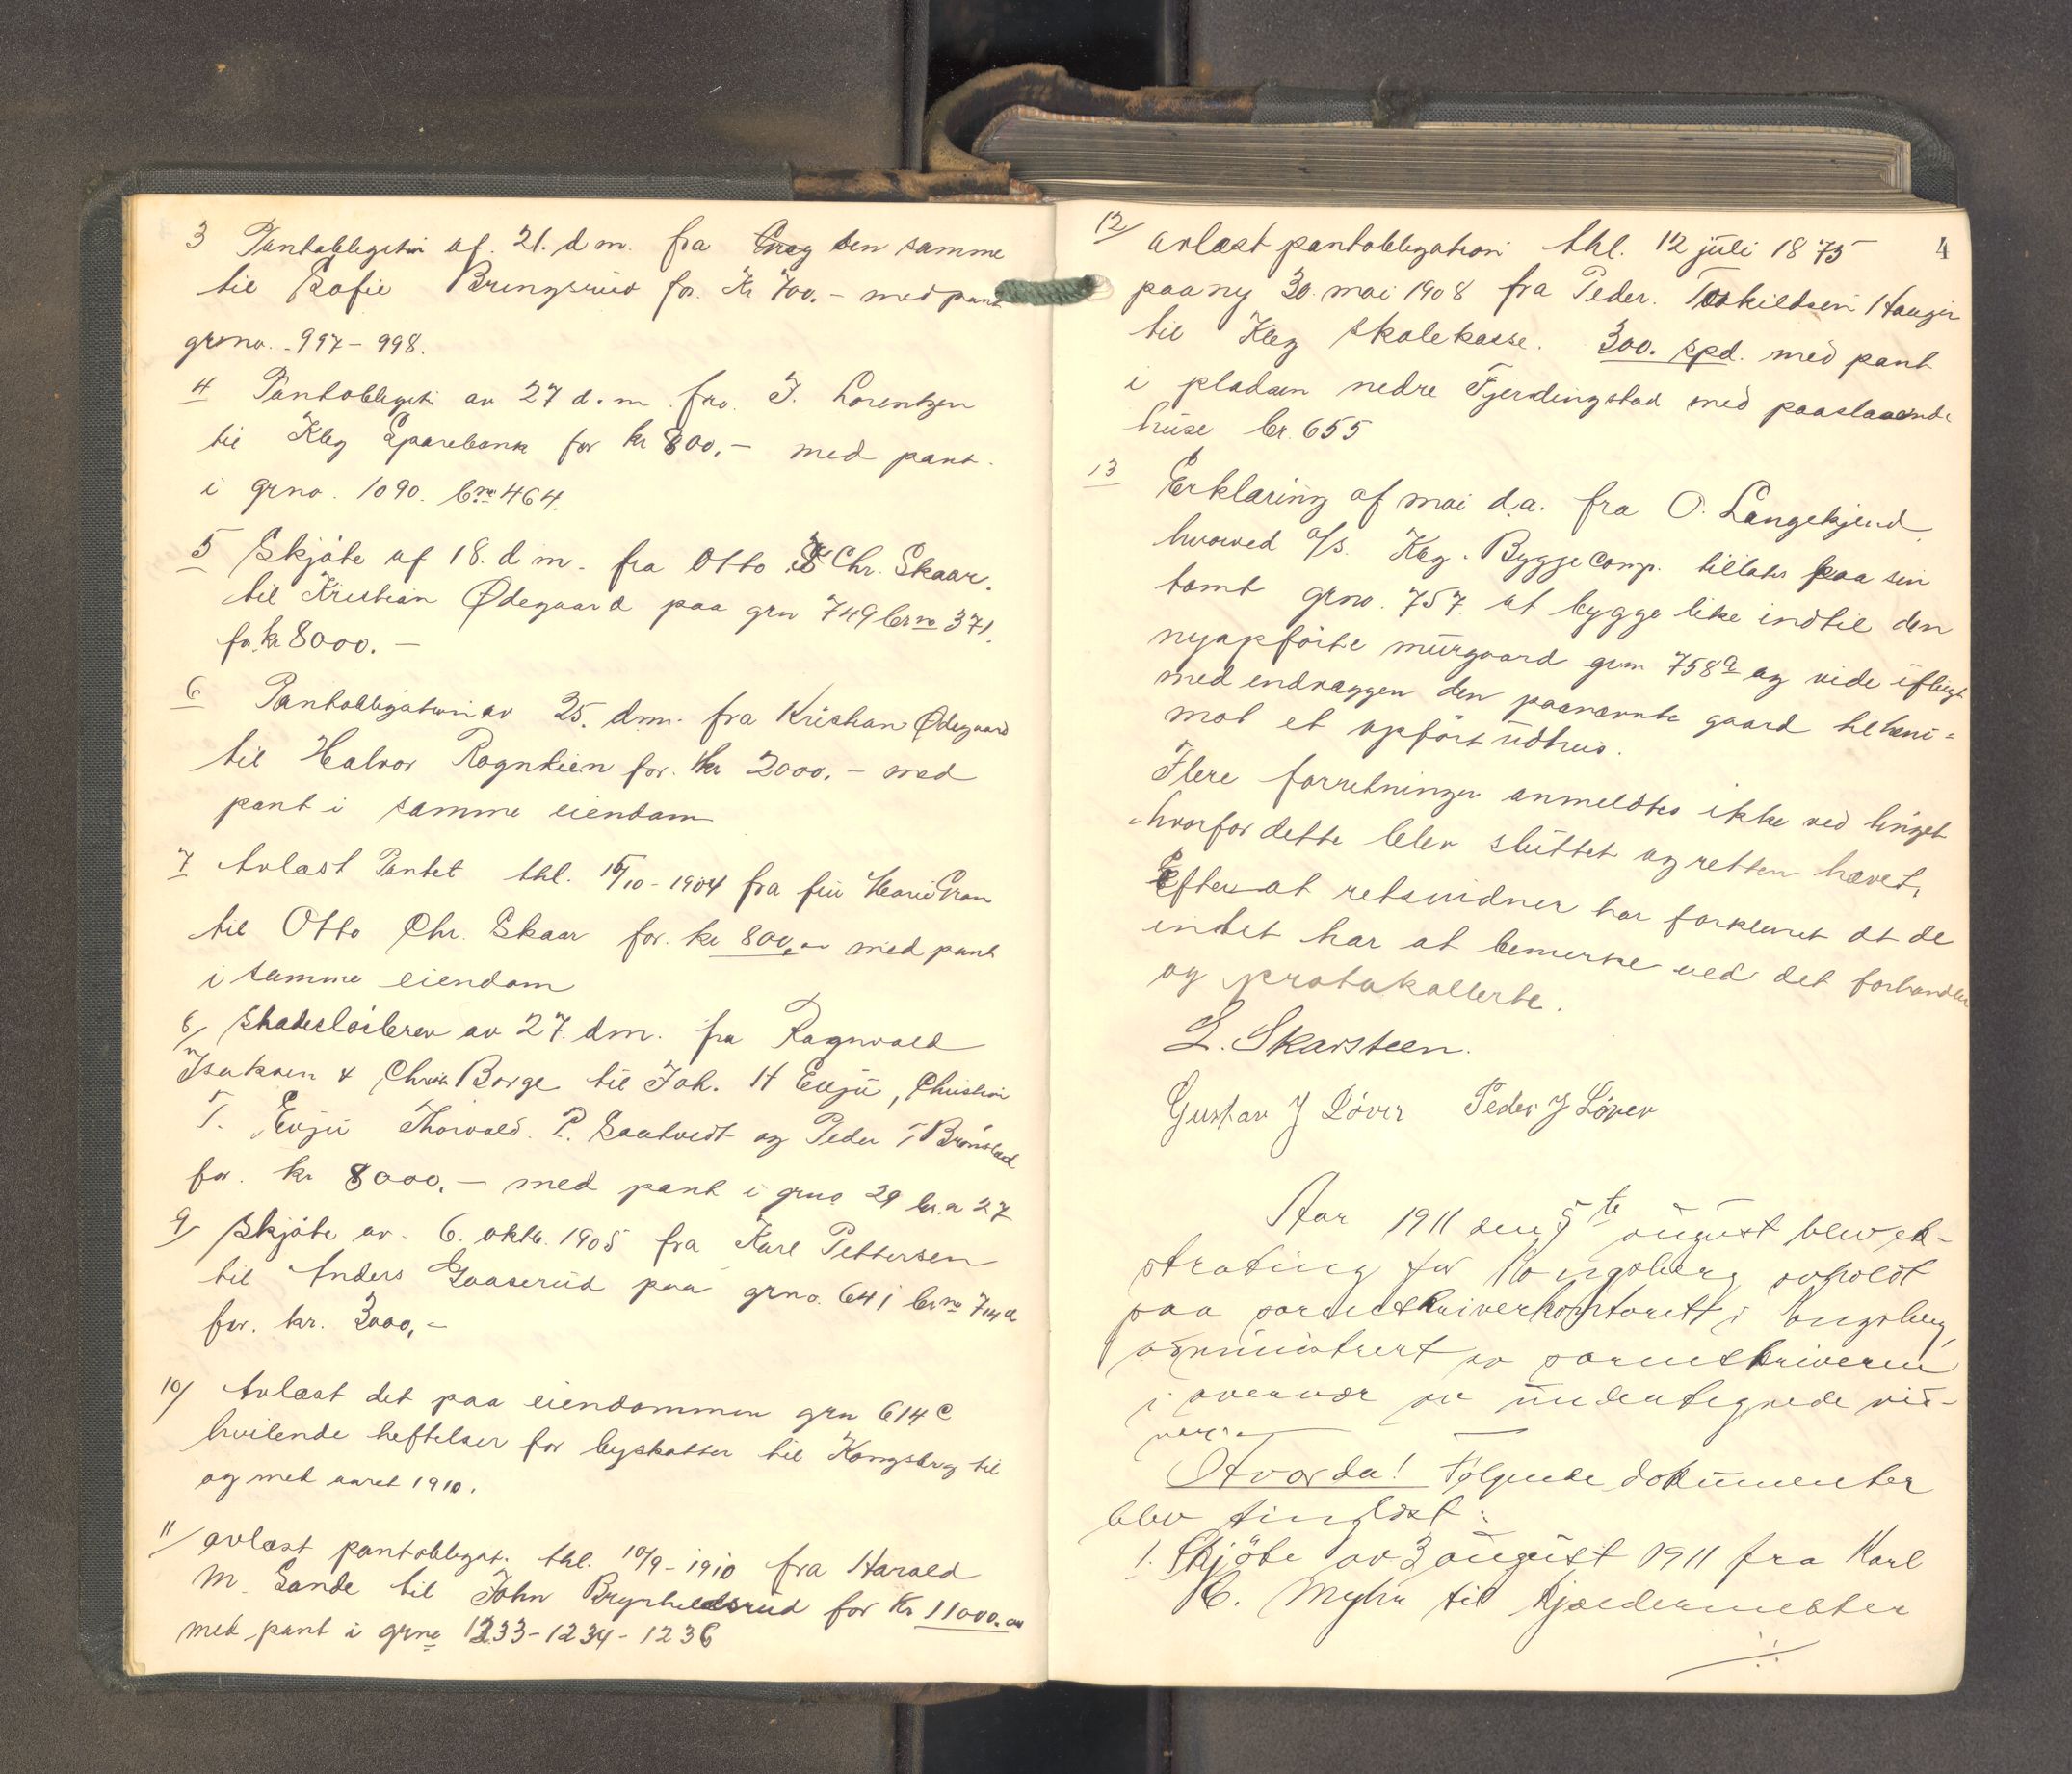 3 Pantobligation af. 21. d m. fra den samme
til Sofie Bringsrud for. Kr 700.- med pant
grno. 997-998.
4 Pantobligati av 27 d.m. fra. J. Lorentzen
til Kbg Sparebank for kr 800,- med pant.
i grno. 1090. bno 464.
5 Skjöte af 18. d m. fra Otto Chr. Skaar.
til Kristian Ødegaard paa grn 749 brno 371.
for kr 8000.-
6 Pantobligation av 25. dm. fra Kristian Ødegaard
til Halvor Rogntien for. kr 2000.- med
pant i samme eiendom
7 Avlæst Pantet thl. 15/10-1904 fra fru Marie Gran
til Otto Chr. Skaar for. kr 800,00 med pant
i samme eiendom
8/ Skadeslösbrev av 27. dm. fra Ragnvald
Isaksen & Chris Borge til Joh. H Evju, Christian
T. Evju Thorvald. P. Saatvedt og Peder T Brønstad
for. kr 8000,- med pant i grno 29 br.n 27
9/ Skjöte av. 6. oktb. 1905 fra Karl Pettersen
til Anders Gaaserud paa grno. 641 brno 714a
for. kr. 3000,-
10/ Avlæst det paa eiendommen grn 614c
hvilende heftelser for byskatter til Kongsberg til
og med aaret 1910.
11/ avlæst pantobligat. thl. 10/9-1910 fra Harald
M. Sande til John Brynhildsrud for Kr 11000.00
med pant i grno 1233-1234-1236
4
12/ avlæst pantobligation thl. 12 juli 1875
paany 30. mai 1908 fra Peder. Torkildsen Haugen
til Kbg skolekasse. 300. spd. med pant
i pladsen nedre Fjerdingstad med paastaaende
huse br. 655
13 Erklæring af mai d.a. fra O. Langekjend
hvorved A/S. Kbg. Bygge Comp. tillates paa sin
tomt grno. 757. at bygge like indtil den
nyopförte murgaard grn. 758a og vide
med endvæggen den paanævnte gaard
mot et opfört udhus.
Flere forretninger anmeldtes ikke ved tinget
hvorfor dette blev sluttet og retten hævet.
Efter at retsvidner har forklaret at de
indet har at bemerke ved det forhandlede
og protokollerte.
L. Skarsteen.
Gustav J Löver Peder J Löver
Aar 1911 den 5te august blev ek-
strating for Kongsberg avholdt
paa sorenskriverkontoret i Kongsberg,
administrert av sorenskriveren
i overvær av undertegnede vid-
ner:
Hvorda! Følgende dokumenter
blev tinglæst:
1. Skjöte av 3 august 1911 fra Karl
C. Myhre til Kjældermester